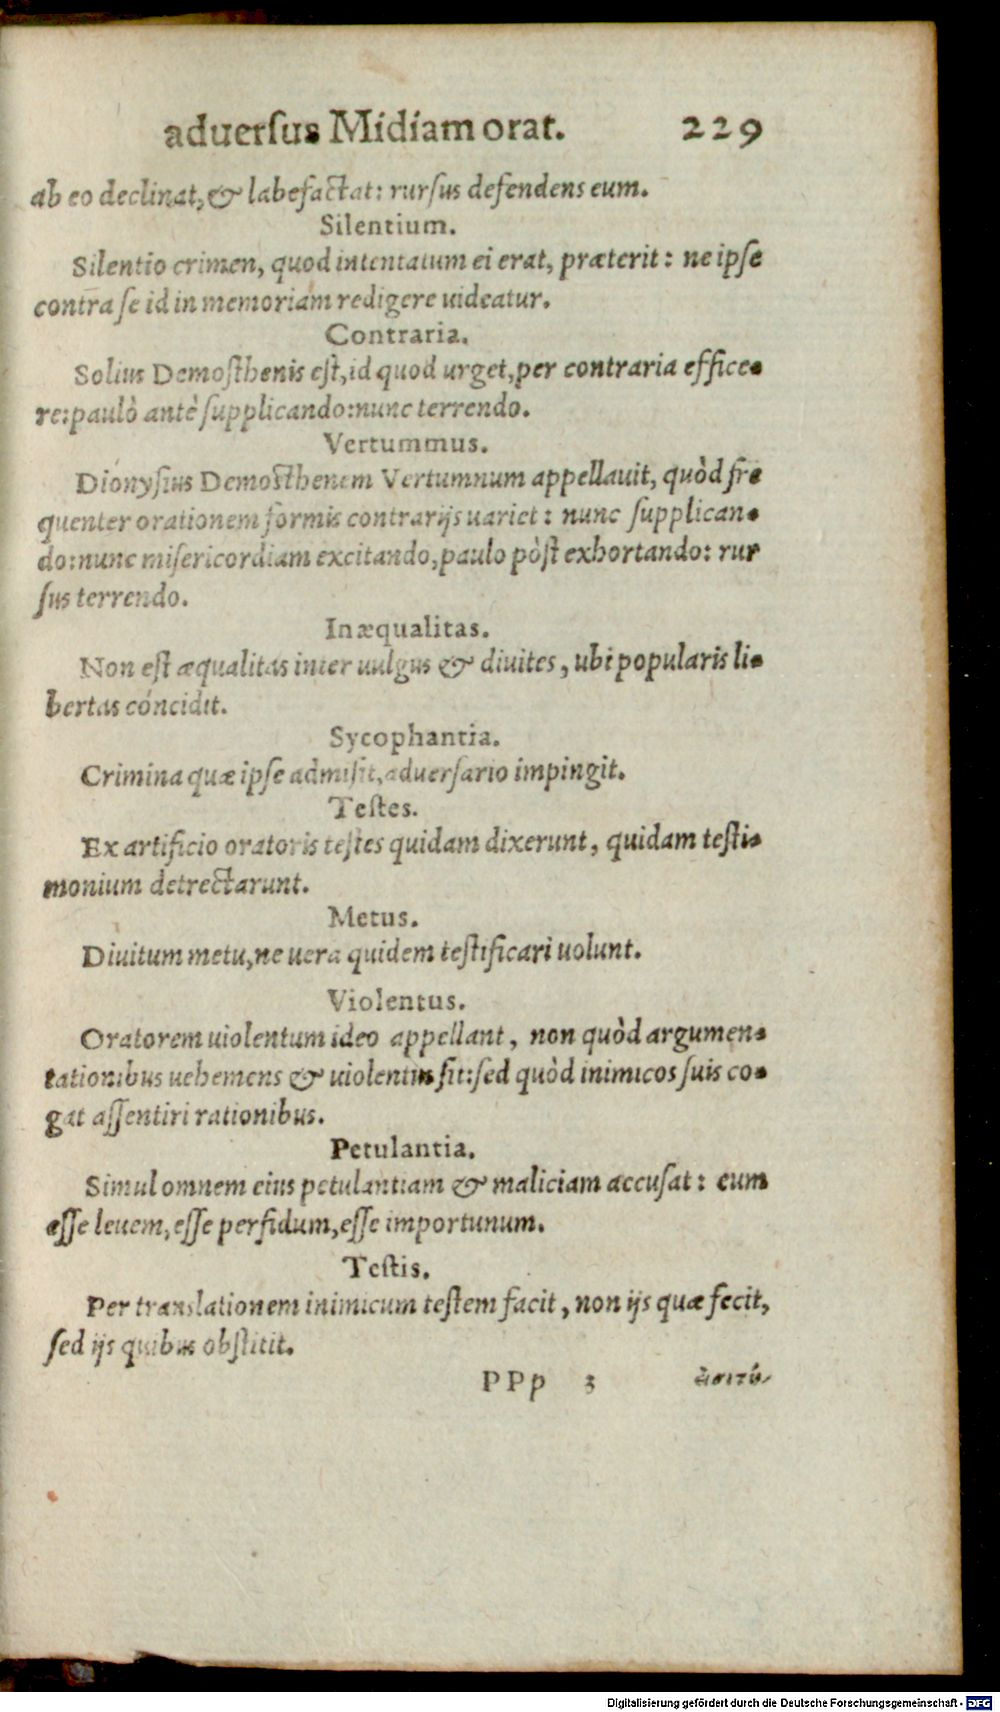 aduerſus Midiam orat. 229
ab eo declinat, & labefactat: rurſus defendens eum.
Silentium.
Silentio crimen, quod intentatum ei erat, præterit: ne ipſe
contra ſe id in memoriam redigere uideatur.
Contraria.
Solius Demoſthenis eſt, id quod urget, per contraria effice-
re: paulò antè ſupplicando: nunc terrendo.
Vertummus.
Dionyſius Demoſthenem Vertumnum appellauit, quòd fre
quenter orationem formis contrarijs uariet: nunc ſupplican-
do: nunc miſericordiam excitando, paulo pòſt exhortando: rur
ſus terrendo.
Inæqualitas.
Non eſt æqualitas inter uulgus & diuites, ubi popularis li-
bertas concidit.
Sycophantia.
Crimina quæ ipſe admiſit, aduerſario impingit.
Teſtes.
Ex artificio oratoris teſtes quidam dixerunt, quidam teſti-
monium detrectarunt.
Metus.
Diuitum metu, ne uera quidem teſtificari uolunt.
Violentus.
Oratorem uiolentum ideo appellant, non quòd argumen-
tationibus uehemens & uiolentus ſit: ſed quòd inimicos ſuis co-
gat aſſentiri rationibus.
Petulantia.
Simul omnem eius petulantiam & maliciam accuſat: eum
eſſe leuem, eſſe perfidum, eſſe importunum.
Teſtis.
Per translationem inimicum teſtem facit, non ijs quæ fecit,
ſed ijs quibus obſtitit.
PPp 3
Digitalisierung gefördert durch die Deutsche Forschungsgemeinschaft - DFG